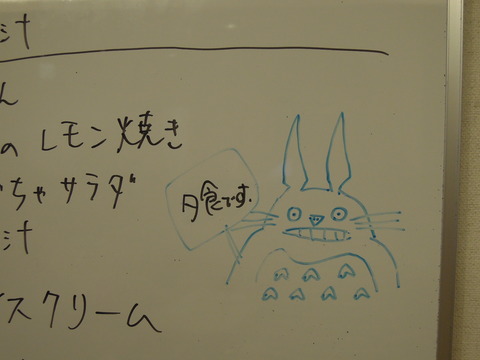 汁
ん
の レモン焼き
ちゃサラダ
汁
イスクリーム
月食です.